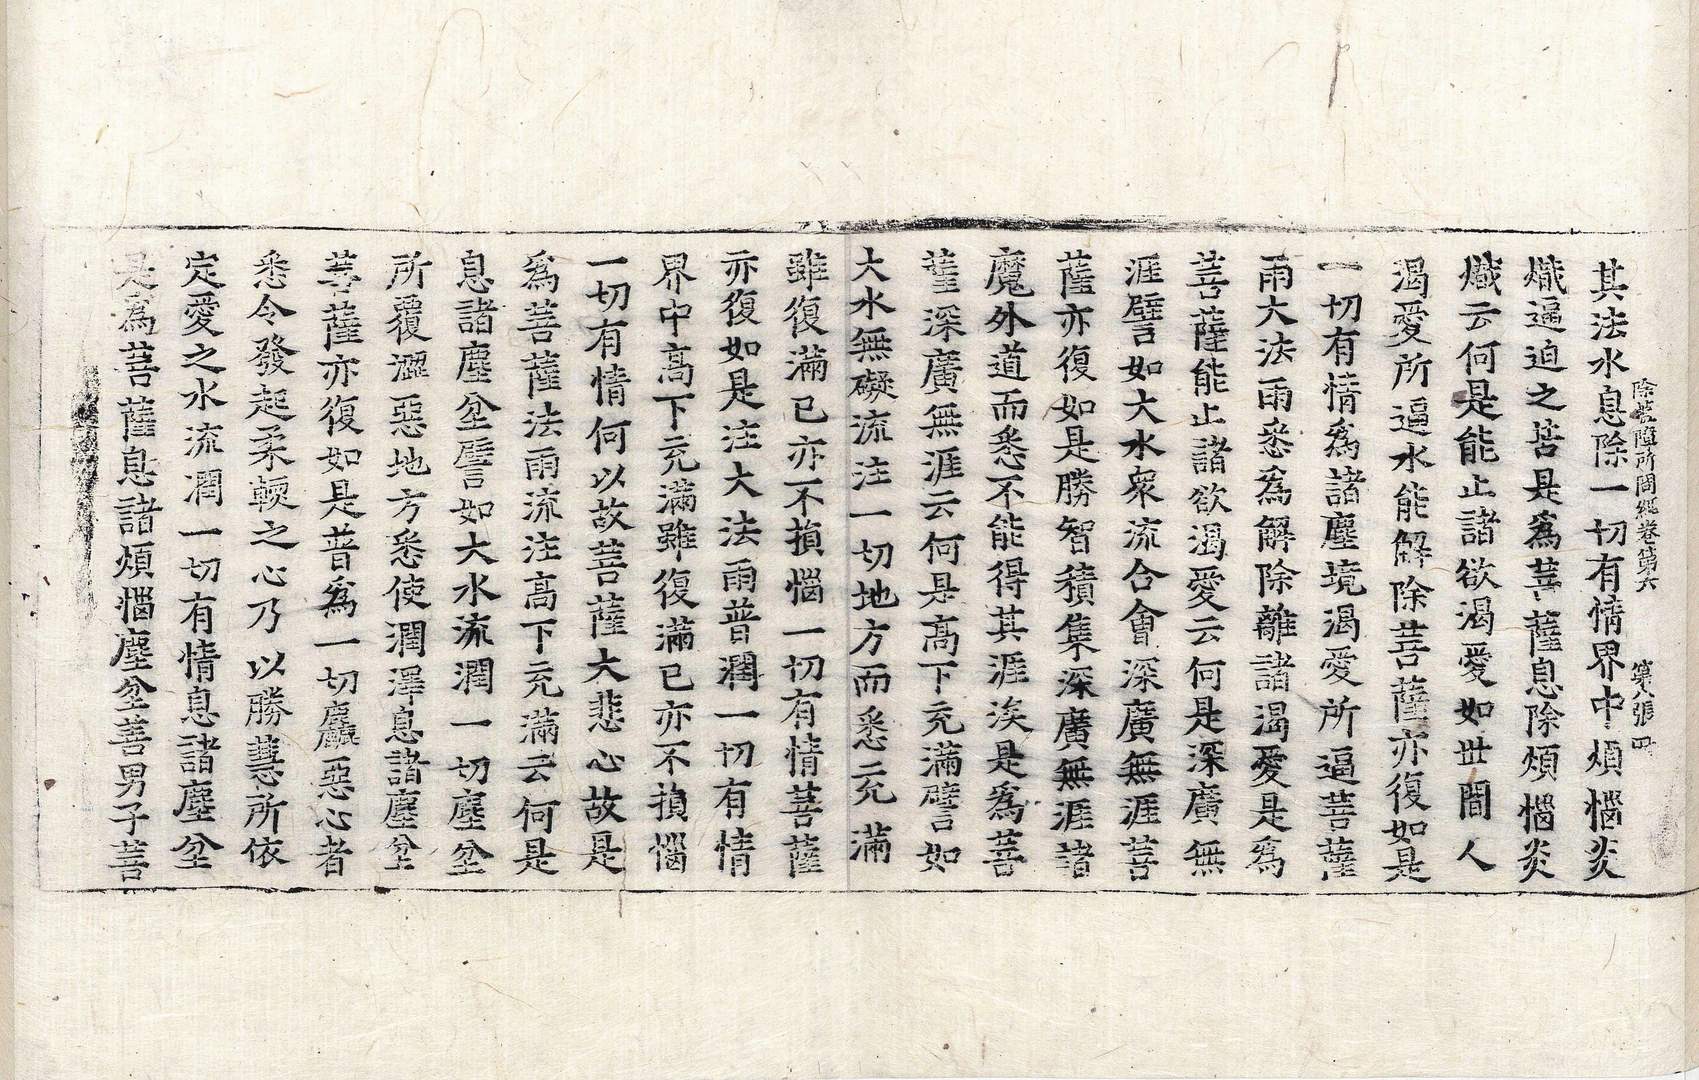 除蓋障所問經卷第六　第八張　四
其法水息除一切有情界中煩惱炎
熾逼迫之苦是為菩薩息除煩惱炎
熾云何是能止諸欲渴愛如世間人
渴愛所逼水能解除菩薩亦復如是
一切有情為諸塵境渴愛所逼菩薩
雨大法雨悉為解除離諸渴愛是為
菩薩能止諸欲渴愛云何是深廣無
涯譬如大水衆流合會深廣無涯菩
薩亦復如是勝智積集深廣無涯諸
魔外道而悉不能得其涯涘是為菩
薩深廣無涯云何是高下充滿譬如
大水無礙流注一切地方而悉充滿
雖復滿已亦不損惱一切有情菩薩
亦復如是注大法雨普潤一切有情
界中高下充滿雖復滿已亦不損惱
一切有情何以故菩薩大悲心故是
為菩薩法雨流注高下充滿云何是
息諸塵坌譬如大水流潤一切塵坌
所覆澀惡地方悉使潤澤息諸塵坌
菩薩亦復如是普為一切麤惡心者
悉令發起柔輭之心乃以勝慧所依
定愛之水流潤一切有情息諸塵坌
是為菩薩息諸煩惱塵坌善男子菩